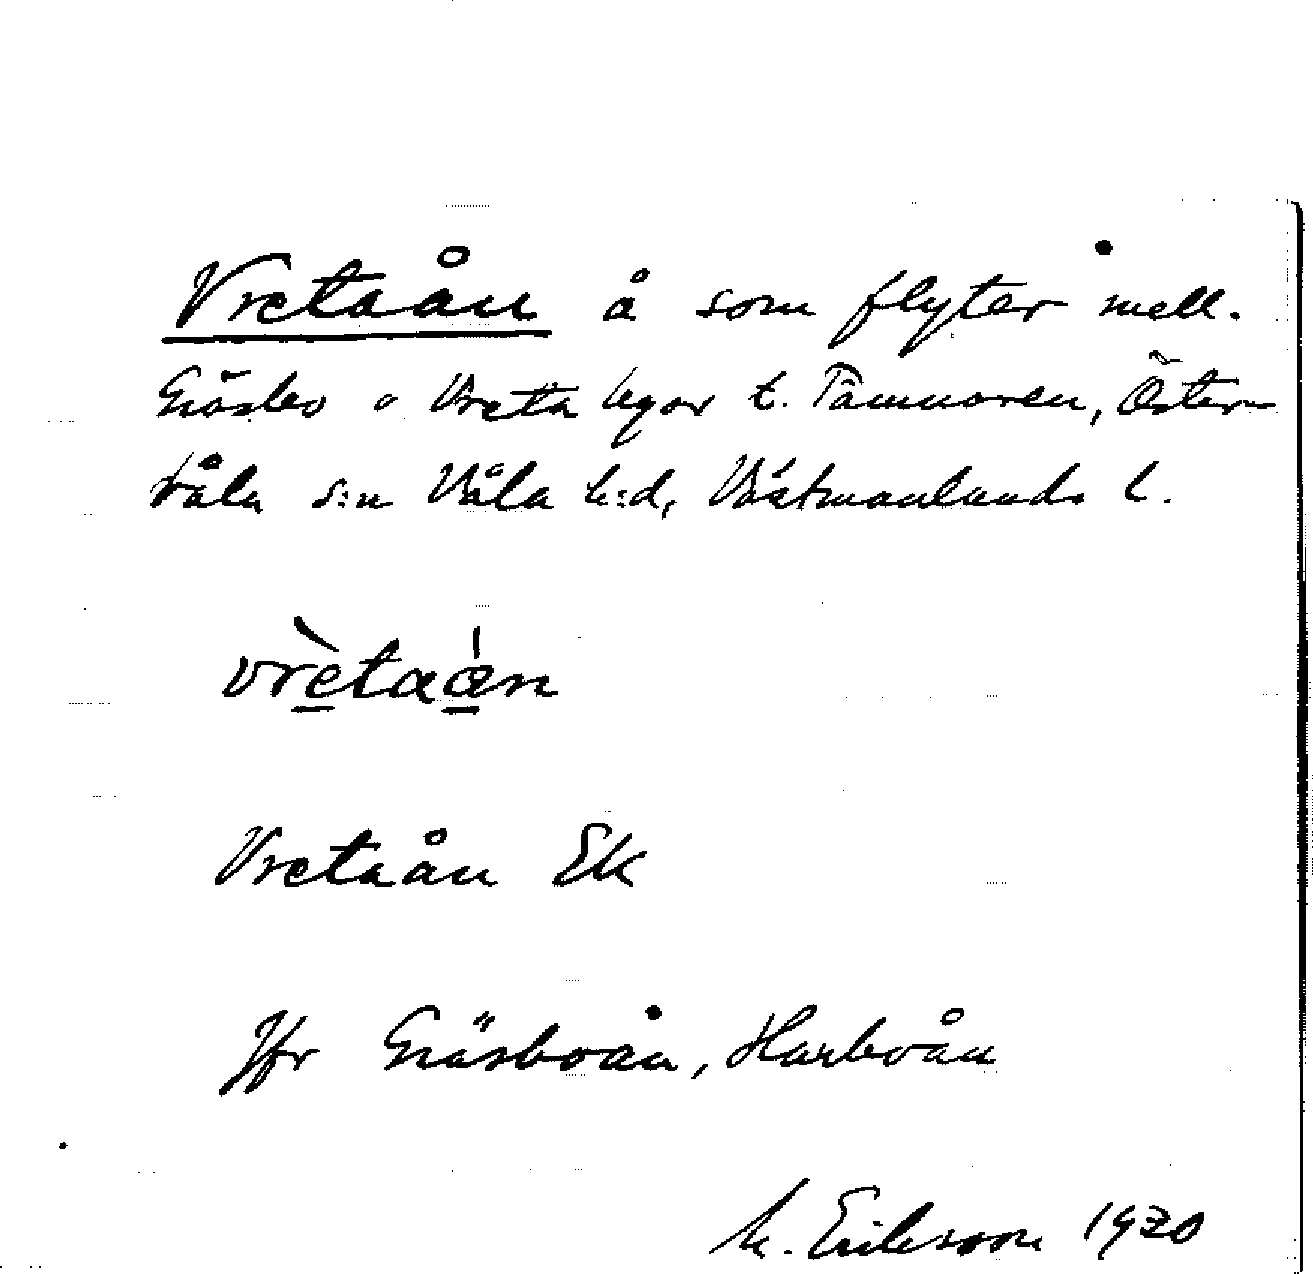 Vretaån å som flyter mell.
Gräsbo o Vreta byar t. Tämnaren, Öster-
våla s:n Våla h:d, Västmanlands l.
vrètaån
Vretaån Ek
Jfr Gräsboån, Harboån
M. Eriksson 1920